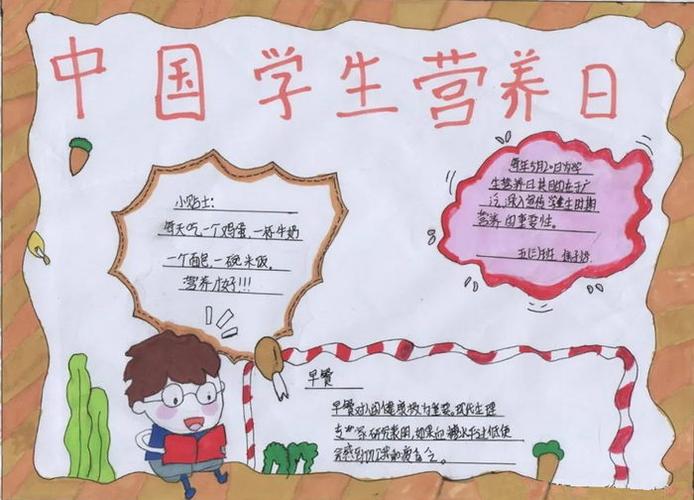 中国学生营养日
小贴士:
每天吃一个鸡蛋,一杯牛奶
一个面包,一碗米饭。
营养才好!!!
每年5月20日为学
生营养日其目的在于广
泛,深入宣传学生时期
营养的重要性。
五(三)班
早餐
早餐对人的健康极为重要,现代生理
专家研究表明,如果血糖水平过低使